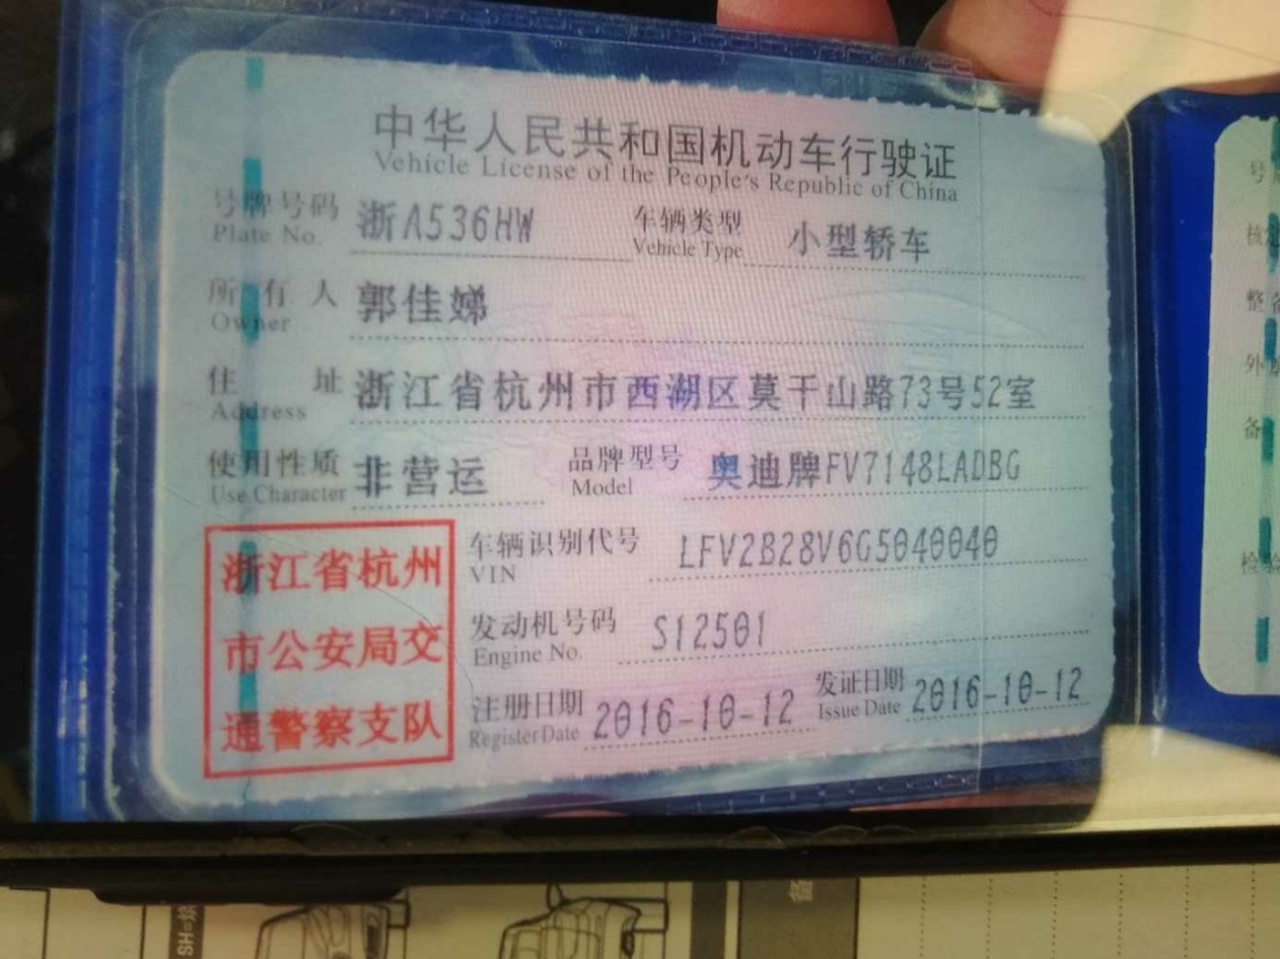 中华人民共和国机动车行驶证
Vehicle License of the People's Republic of China
号牌号码 浙A536HW 车辆类型 小型轿车
Plate No. Vehicle Type
所有人 郭佳娣
Owner
住址 浙江省杭州市西湖区莫干山路73号52室
Address
使用性质 非营运 品牌型号 奥迪牌FV7148LADBG
Use Character Model
浙江省杭州
市公安局交
通警察支队
车辆识别代号 LFV2B28V6G5040040
VIN
发动机号码 S12501
Engine No.
注册日期 2016-10-12 发证日期 2016-10-12
Register Date Issue Date
号
核
整备
外
备
检验
SH=